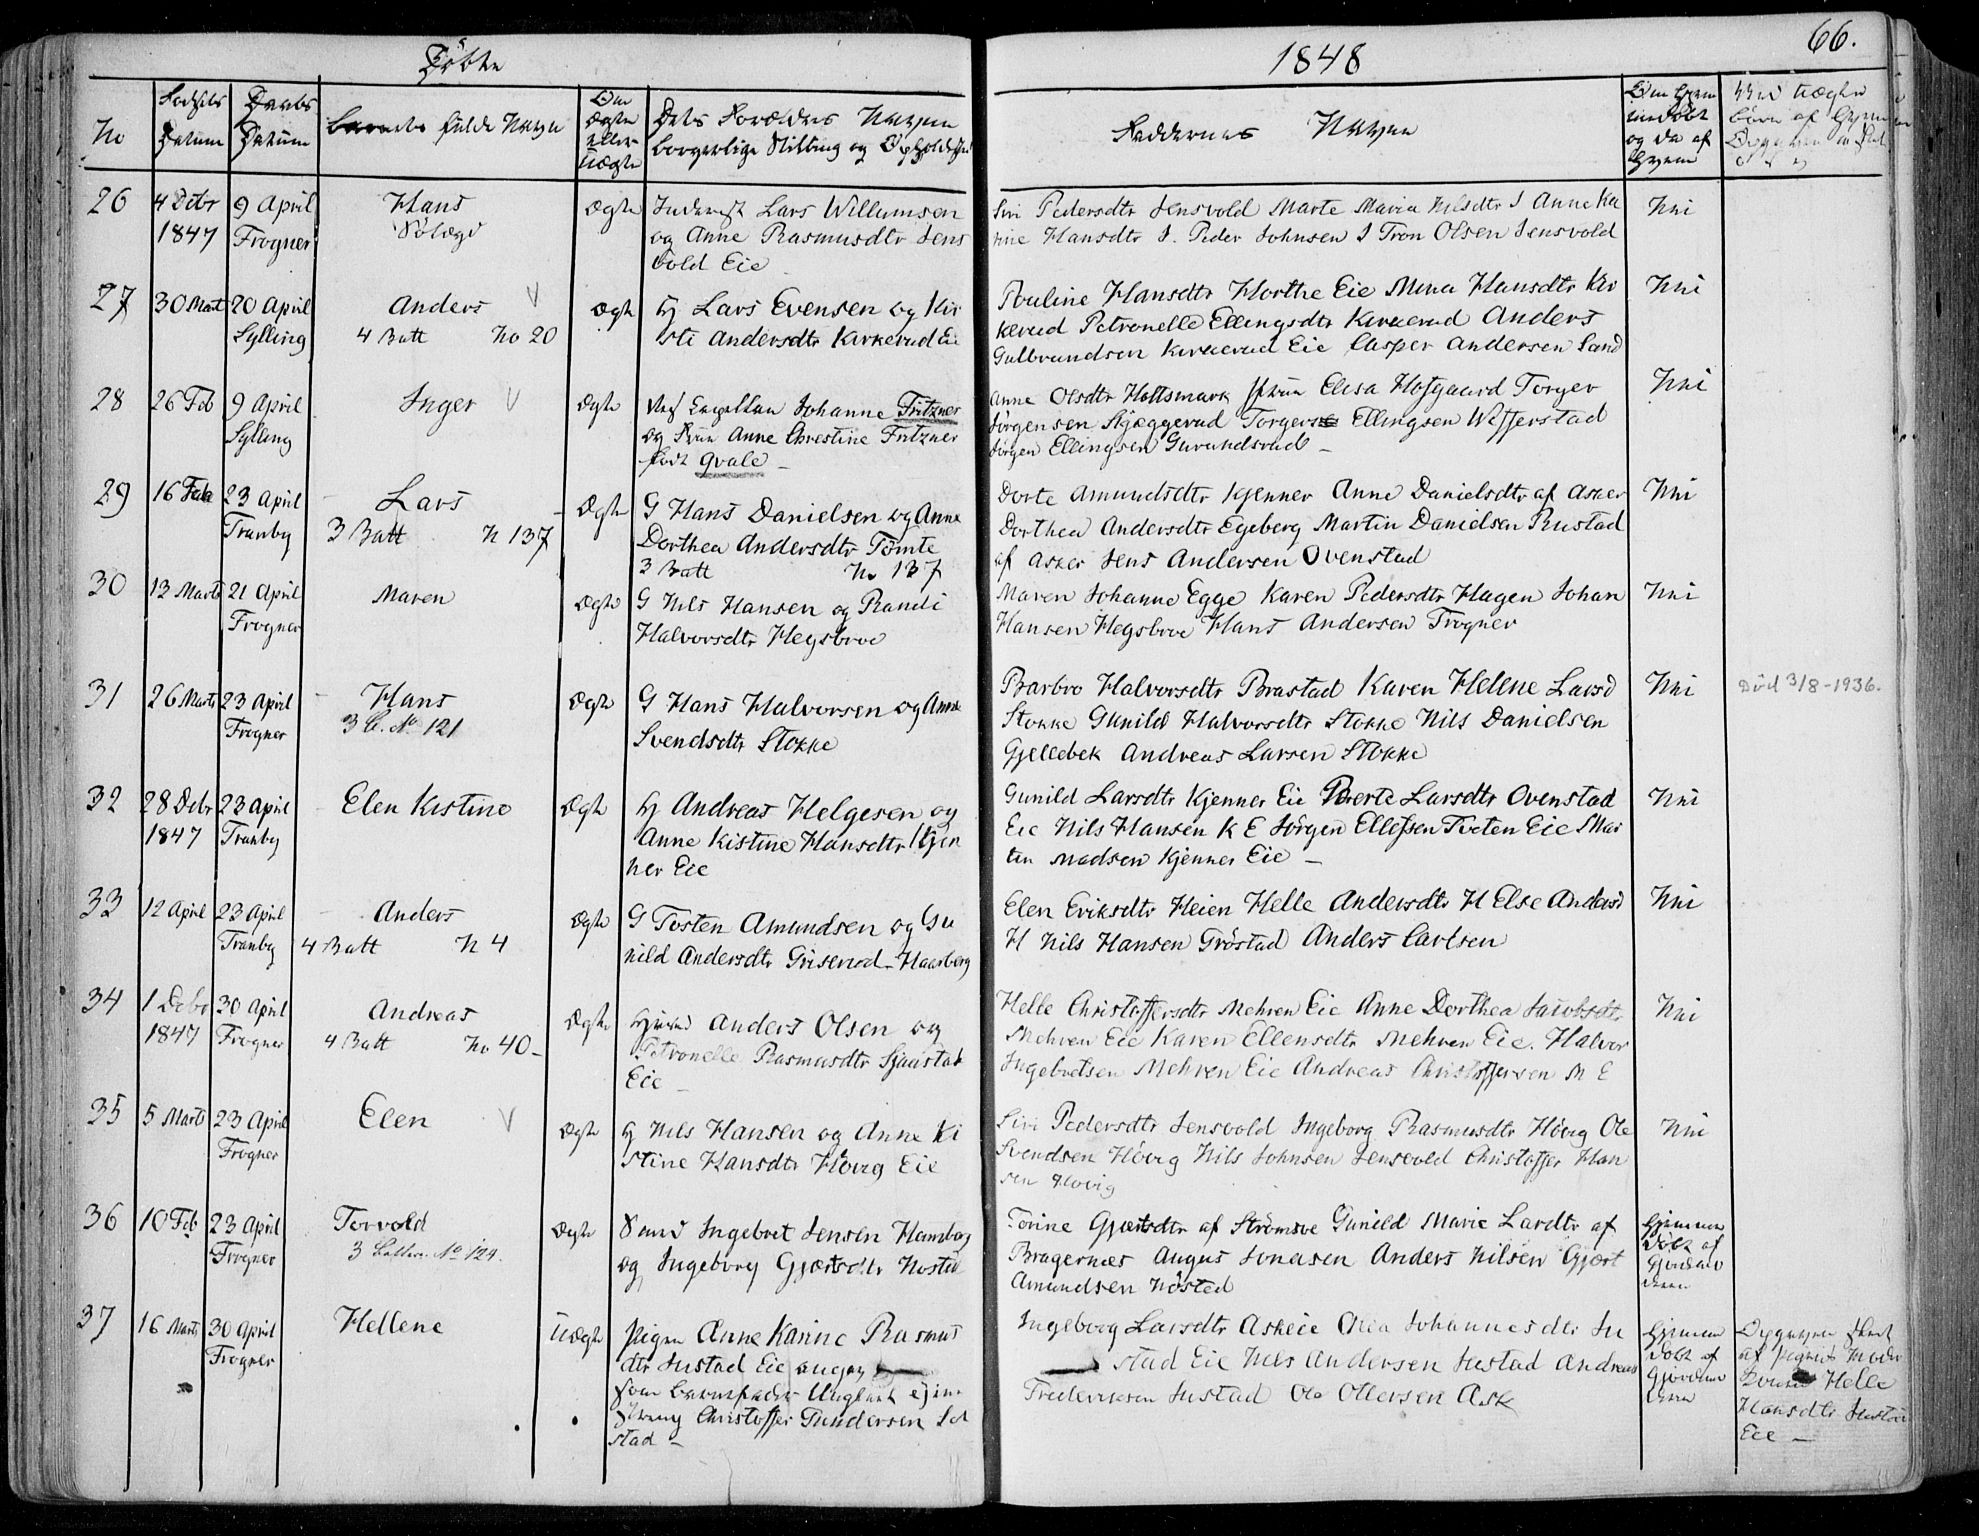 Döbte
1848
66.
No
Födsels Datum
Daabs Datum
Barnets fulde Navn
Om Ægte eller Uægte
Dets Forældres Navn
borgerlige Stilling og
Faddernes Navn
Om hjemmedöbt og da af hvem
26
4 Debr 1847
9 April Frogner
Hans
Ægte
Inderst Lars Willumsen
og Anne Rasmusdtr Jens
vold Eie
Siri Pedersdtr Jensvold Marte Maria Nilsdtr J Anne Ka
trine Hansdtr J. Peder Johnsen J Tron Olsen Jensvold
Nei
27
30 Mart
20 April Sylling
Anders V
4 Batt No 20
Ægte
Hj Lars Evensen og Kir
sti Andersdtr Kirkerud Eie
Pauline Hansdtr Horthe Eie Mina Hansdtr Kir
kerud Petronelle Ellingsdtr Kirkerud Anders
Gulbrandsen Kirkerud Eie Casper Andersen Sand
Nei
28
26 Feb
9 April Sylling
Inger V
Ægte
Johanne Fritzner
og Frue Anne Christine Fritzner
född Qvale –
Anne Olsdtr Holtsmark Elisa Hofgaard Torger
Jörgensen Skjæggerud Torger Ellingsen Wefferstad
Jörgen Ellingsen Gurandsrud –
Nei
29
16 Feb
23 April Tranby
Lars
3 Batt N 137
Ægte
G Hans Danielsen og Anne
Dorthea Andersdtr Tömte
3 Batt No 137
Dorte Amundsdtr Kjenner Anne Danielsdtr af Asker
Dorthea Andersdtr Egeberg Martin Danielsen Rustad
af Asker Jens Andersen Ovenstad
Nei
30
13 Marts
21 April Frogner
Maren
Ægte
G Nils Hansen og Randi
Halvorsdtr Hegsbroe
Maren Johanne Egge Karen Pedersdtr Hagen Johan
Hansen Hegsbroe Hans Andersen Frogner
Nei
31
26 Marts
23 April Frogner
Hans
3 B. No 121
Ægte
G Hans Halvorsen og Anne
Svendsdtr Stokke
Barbro Halvorsdtr Brastad Karen Helene Larsd
Stokke Gunild Halvorsdtr Stokke Nils Danielsen
Gjellebek Andreas Larsen Stokke
Nei
Död 3/8-1936.
32
28 Debr 1847
23 April Tranby
Elen Kistine
Ægte
Hj Andreas Helgesen og
Anne Kistine Hansdtr Kjen
ner Eie
Gunild Larsdtr Kjenner Eie Berte Larsdtr Ovenstad
Eie Nils Hansen K E Jörgen Ellefsen Tveten Eie Mar
tin Madsen Kjenner Eie –
Nei
33
12 April
23 April Tranby
Anders
4 Batt N 4
Ægte
G Tosten Amundsen og Gu
nild Andersdtr Griserud – Haarberg
Elen Eriksdtr Heien Helle Andersdtr H Else Andersd
H Nils Hansen Gröstad Anders Carlsen
Nei
34
1 Debr 1847
30 April Frogner
Andreas
4 Batt No 40 –
Ægte
Anders Olsen og
Petronelle Rasmusdtr Sjaastad
Eie –
Helle Christoffersdtr Mehren Eie Anne Dorthea Jacobsdtr
Mehren Eie Karen Ellensdtr Mehren Eie. Halvor
Ingebretsen Mehren Eie Andreas Christoffersen M E
Nei
35
5 Marts
23 April Frogner
Elen V
Ægte
Hj Nils Hansen og Anne Ki
stine Hansdtr Hövig Eie
Siri Pedersdtr Jensvold Ingeborg Rasmusdtr Hövig Ole
Svendsen Hövig Nils Johnsen Jensvold Christoffer Han
sen Hövig
Nei
36
10 Feb
23 April Frogner
Torvald
3 Batln. No 124.
Ægte
Ingebret Jensen Hamborg
og Ingeborg Gjertsdtr Nösted
Torine Gjertsdtr af Strömsöe Gunild Marie Larsdtr af
Bragernæs August Jonasen Anders Nilsen Gjert
Amundsen Nösted
Hjemme
döbt af
Gjordemo
deren
37
16 Marts
30 April Frogner
Hellene
Uægte
Pigen Anne Karine Rasmus
dtr Justad Eie angav
som Barnefader Ungkarl
Christoffer Gundersen Ju
stad –
Ingeborg Larsdtr Askeie Johannesdtr Ju
stad Eie Nils Andersen Justad Andreas
Frederiksen Justad Ole Ottersen Ask
Hjemme
döbt af
Gjordemo
deren
Opgaven skeet
af Pigens Moder
Helle
Hansdtr Justad
Eie –